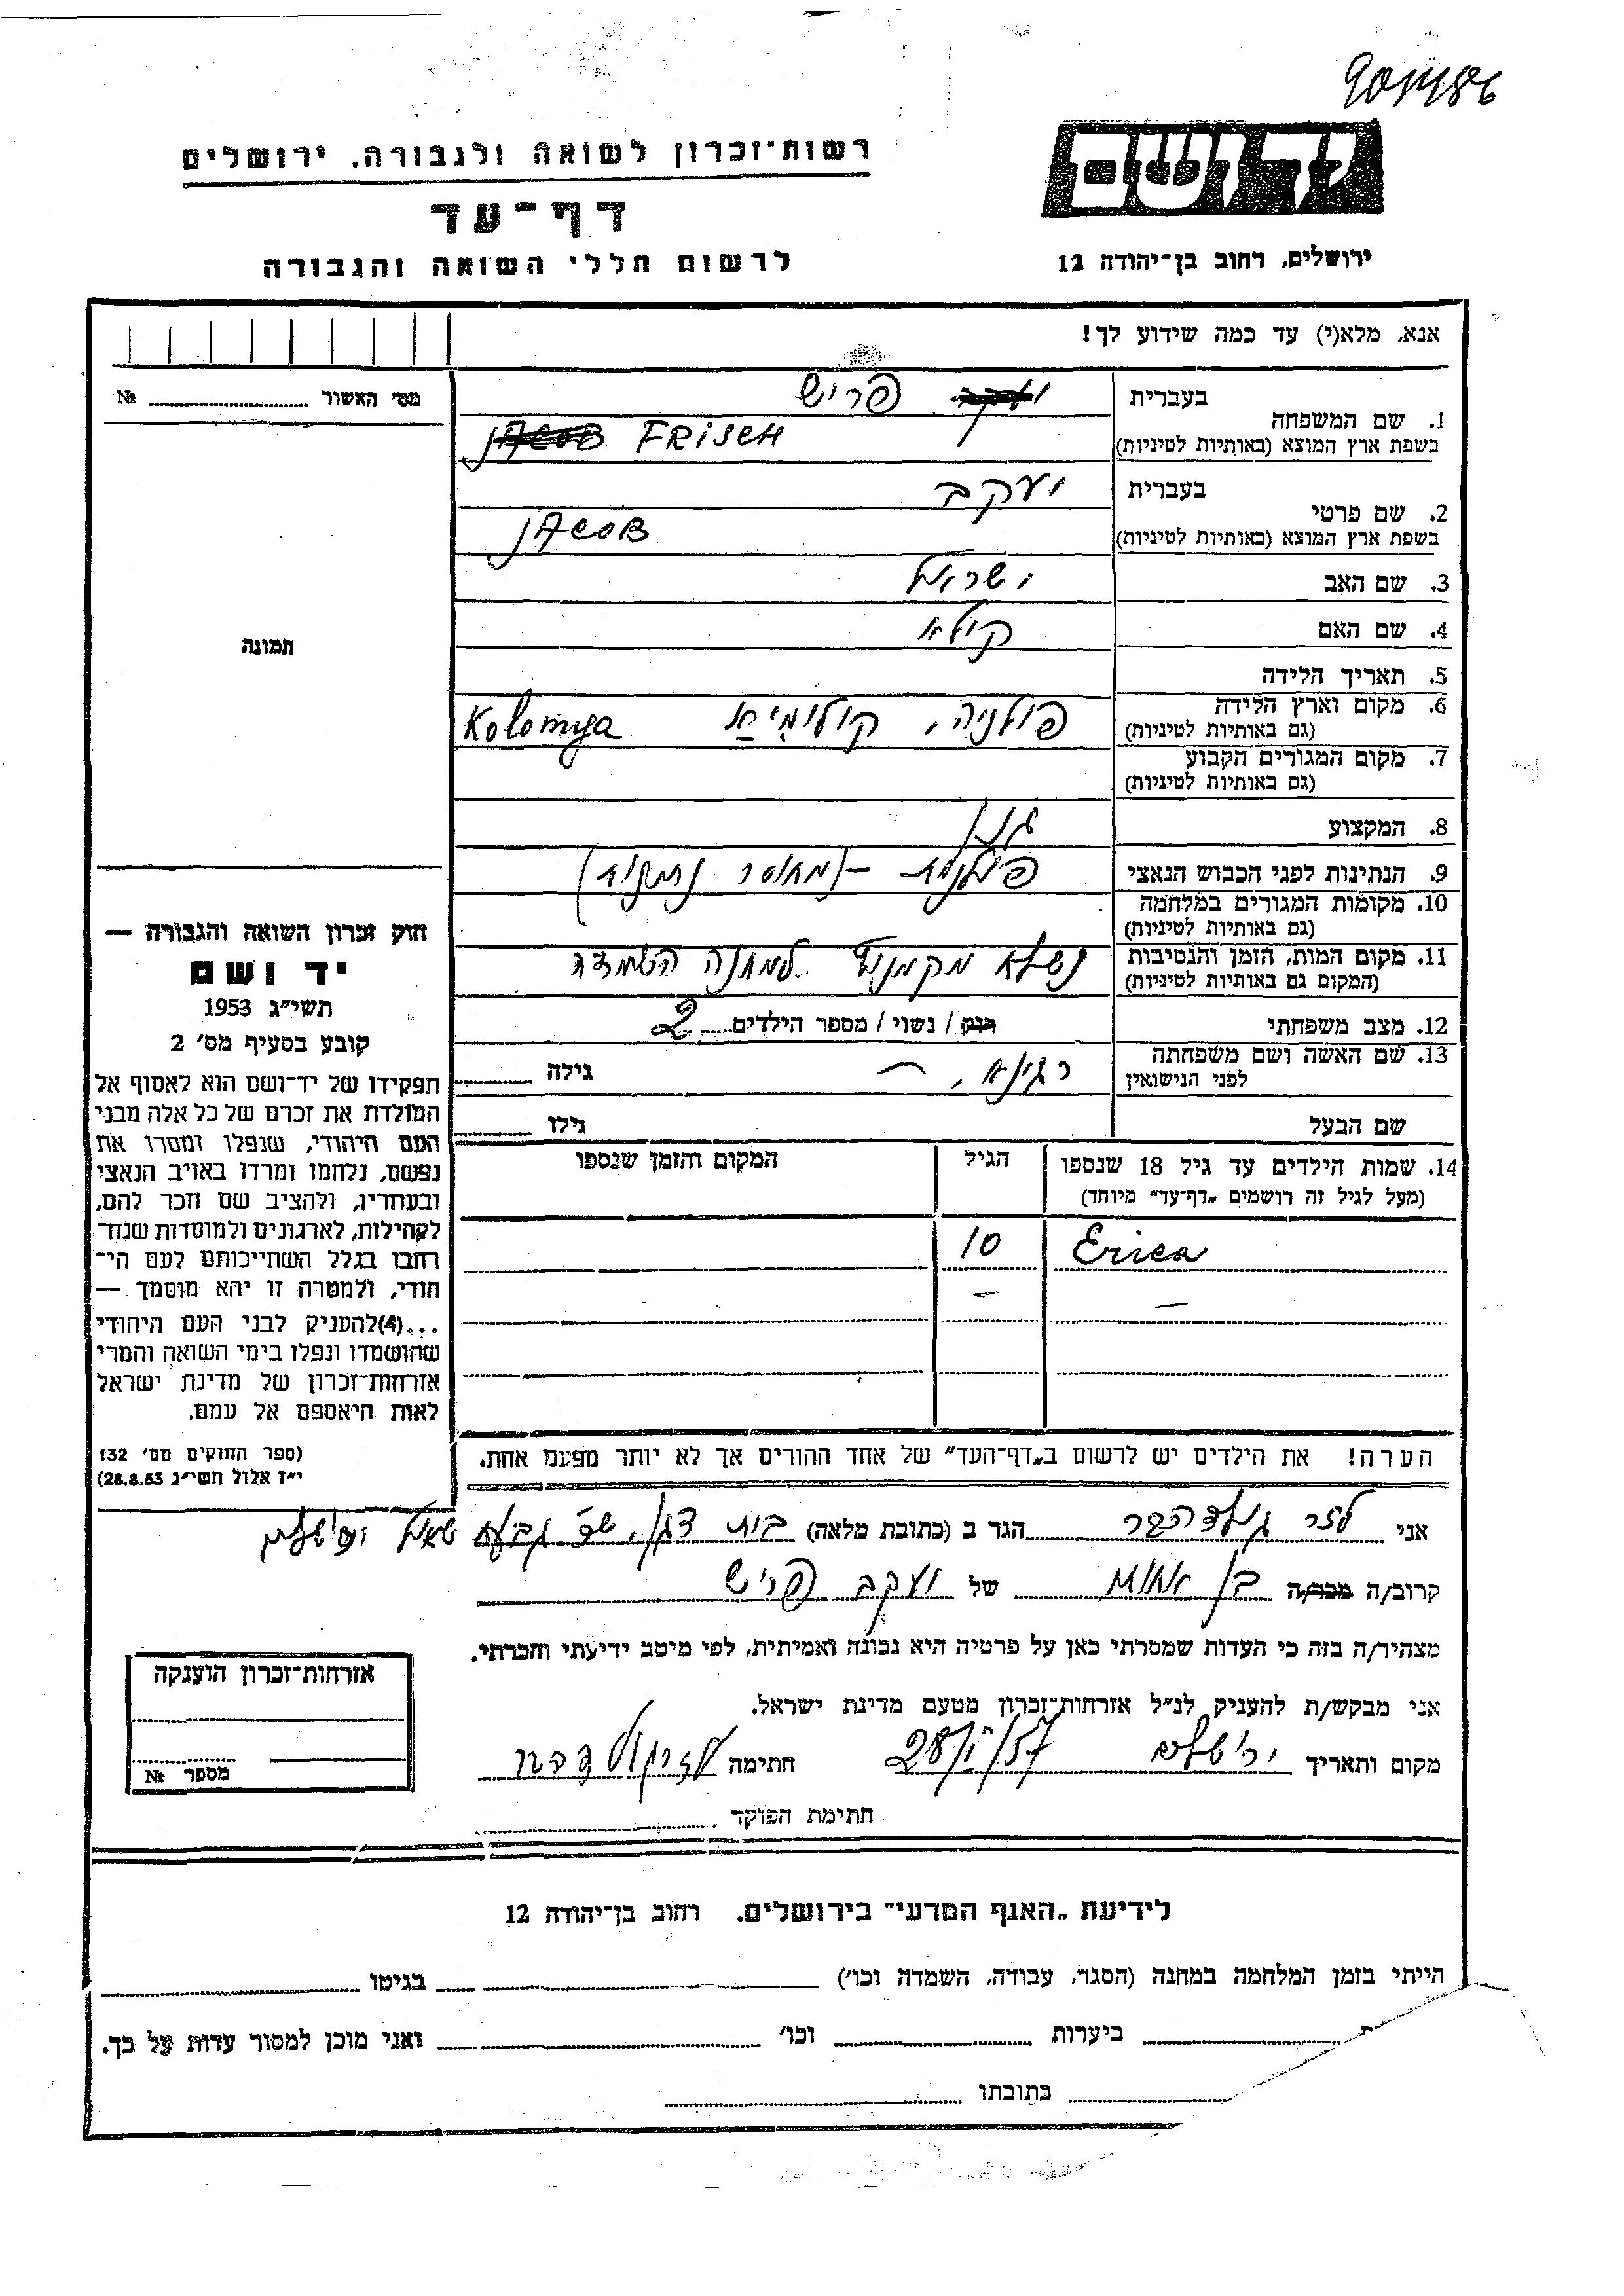 רשות־זכרון לשואה ולגבורה, ירושלים
דף־עד
לרשום חללי השואה והגבורה
ידושם
ירושלים, רחוב בן־יהודה 12
אנא, מלא(י) עד כמה שידוע לך!
מס׳ האשור № 
1. שם המשפחה
בעברית פריש
בשפת ארץ המוצא (באותיות לטיניות) FRISCH
2. שם פרטי
בעברית יעקב
בשפת ארץ המוצא (באותיות לטיניות) JACOB
3. שם האב ישראל
4. שם האם
5. תאריך הלידה
6. מקום וארץ הלידה פולניה, קולומיא Kolomya
(גם באותיות לטיניות)
7. מקום המגורים הקבוע
(גם באותיות לטיניות)
8. המקצוע
9. הנתינות לפני הכבוש הנאצי
10. מקומות המגורים במלחמה
(גם באותיות לטיניות)
11. מקום המות, הזמן והנסיבות למחנה השמדה
(המקום גם באותיות לטיניות)
12. מצב משפחתי רוק / נשוי / מספר הילדים 2
13. שם האשה ושם משפחתה רגינא, — גילה
לפני הנישואין
שם הבעל גילו
14. שמות הילדים עד גיל 18 שנספו הגיל המקום והזמן שנספו
(מעל לגיל זה רושמים „דף־עד״ מיוחד)
Erica 10
— —
הערה! את הילדים יש לרשום ב„דף־העד״ של אחד ההורים אך לא יותר מפעם אחת.
תמונה
חוק זכרון השואה והגבורה —
יד ושם
תשי״ג 1953
קובע בסעיף מס׳ 2
תפקידו של יד־ושם הוא לאסוף אל
המולדת את זכרם של כל אלה מבני
העם היהודי, שנפלו ומסרו את
נפשם, נלחמו ומרדו באויב הנאצי
ובעוזריו, ולהציב שם וזכר להם,
לקהילות, לארגונים ולמוסדות שנח־
רבו בגלל השתייכותם לעם הי־
הודי, ולמטרה זו יהא מוסמך —
...(4)להעניק לבני העם היהודי
שהושמדו ונפלו בימי השואה והמרי
אזרחות־זכרון של מדינת ישראל
לאות היאספם אל עמם.
(ספר החוקים מס׳ 132
י״ז אלול תשי״ג 28.8.53)
אני הגר ב (כתובת מלאה) בית דגן,
קרוב/ה מכר/ה בן אחות של יעקב פריש
מצהיר/ה בזה כי העדות שמסרתי כאן על פרטיה היא נכונה ואמיתית, לפי מיטב ידיעתי והכרתי.
אני מבקש/ת להעניק לנ״ל אזרחות־זכרון מטעם מדינת ישראל.
מקום ותאריך ירושלים חתימה
חתימת הפוקד
אזרחות־זכרון הוענקה
מספר №
לידיעת „האגף המדעי״ בירושלים. רחוב בן־יהודה 12
הייתי בזמן המלחמה במחנה (הסגר, עבודה, השמדה וכו׳) בגיטו
ביערות וכו׳ ואני מוכן למסור עדות על כך.
כתובתו